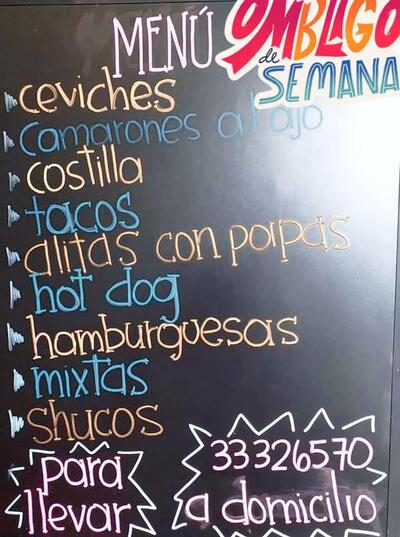 MENÚ
OMBLIGO
de
SEMANA
ceviches
camarones al ajo
costilla
tacos
alitas con papas
hot dog
hamburguesas
mixtas
shucos
para
llevar
33326570
a domicilio